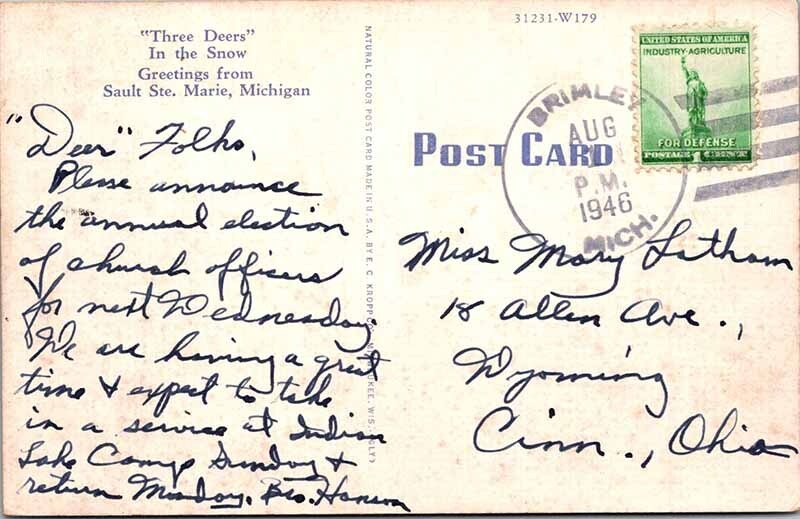 "Three Deers"
In the Snow
Greetings from
Sault Ste. Marie, Michigan
"Deer" Folks,
Please announce
the annual election
of church officers
for next Wednesday.
We are having a great
time & expect to take
in a service at Indian
Lake Camp Sunday &
return Monday. Bro. Hanson
NATURAL COLOR POST CARD MADE IN U.S.A. BY E. C. KROPP CO., MILWAUKEE, WIS.
31231-W179
POST CARD
BRIMLEY
AUG
P.M.
1946
MICH.
UNITED STATES OF AMERICA
INDUSTRY·AGRICULTURE
FOR DEFENSE
POSTAGE 1 CENT
Miss Mary Latham
18 Allen Ave.,
Wyoming
Cinn., Ohio